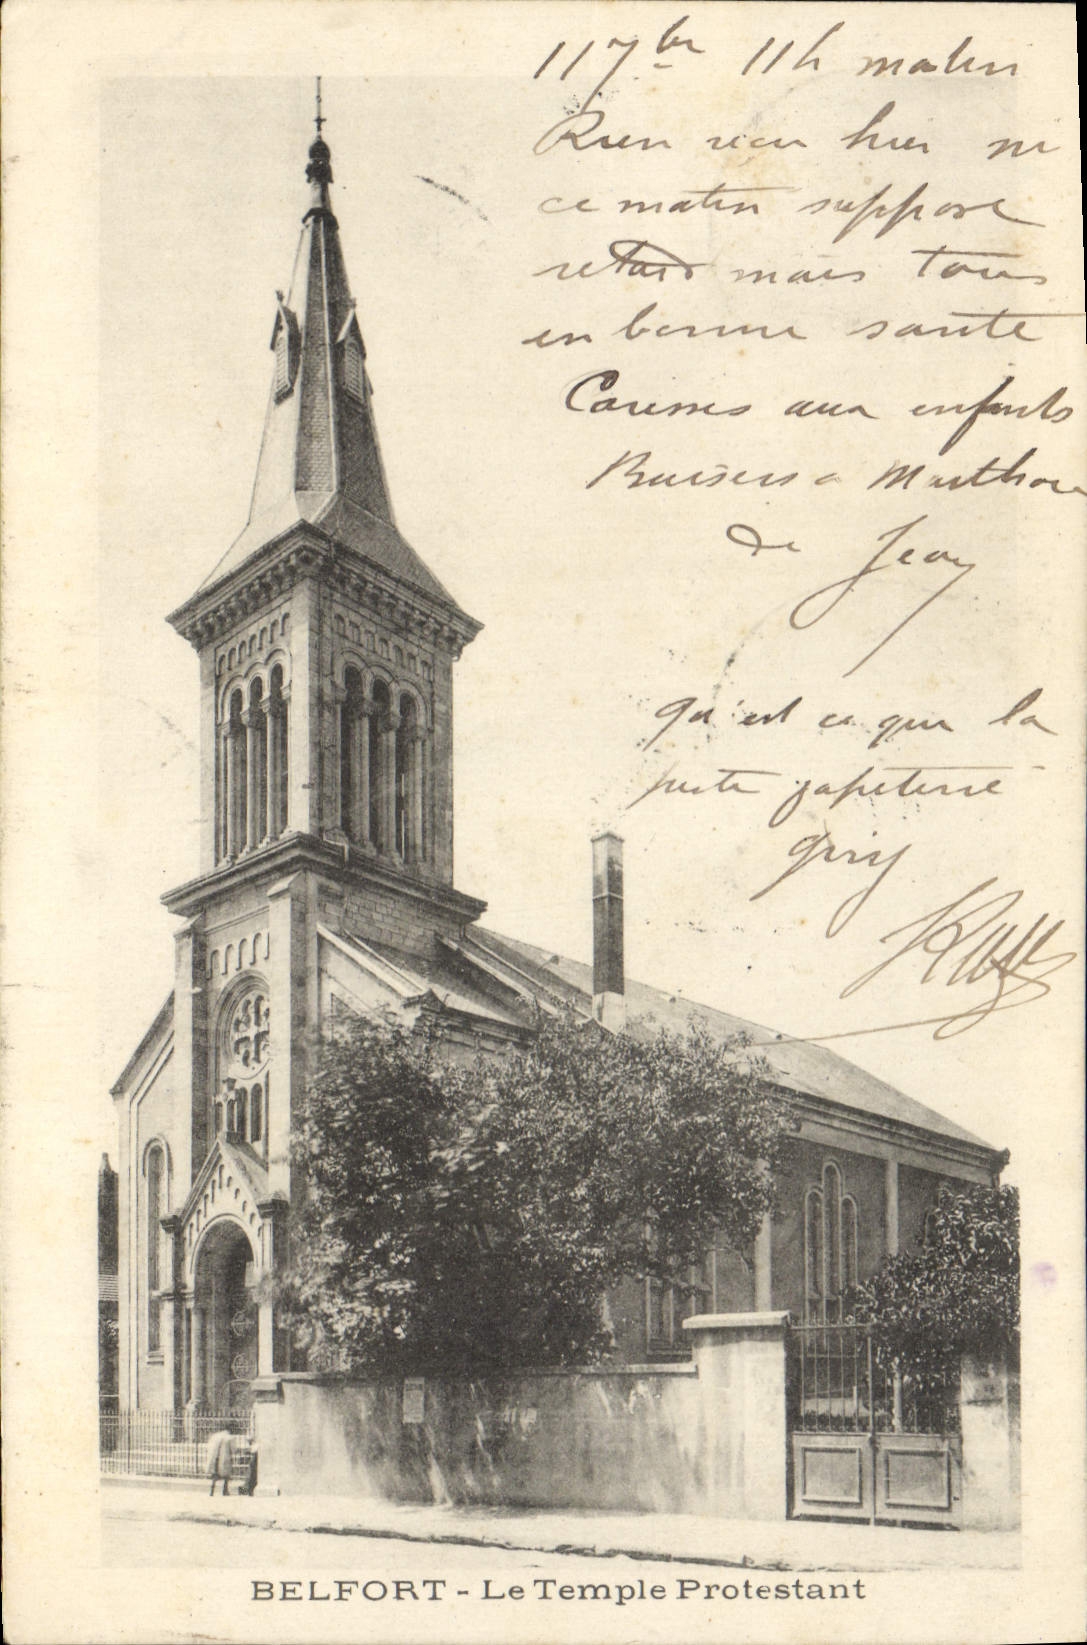 11 7bre 11h matin
Rien reçu hier ni
ce matin suppose
retard mais tous
en bonne santé
Caresses aux enfants
Baisers a
de Jean
Qu'est ce que la
papeterie
BELFORT - Le Temple Protestant